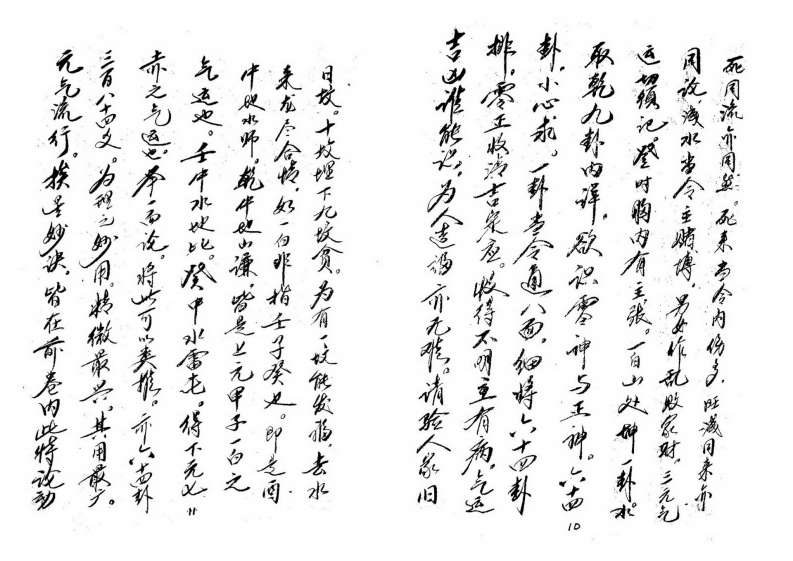 死同流亦同然。死来当令内伤多，旺减同来亦
同说，减水当令主赌博，男女作乱败家财。三元气
运切须记。登时胸内有主张。一白山处坤一卦水。
取乾九卦内详。欲识零神与正神。六十四
卦，小心求。一卦当令通八面，细将六十四卦
排，零正收清吉定应。收得不明主有病。气运
吉凶谁能识，为人造福亦无难。请验人家旧
10
日坟。十坟埋下九坟贫。为有一坟能发福，去水
来龙尽合情，如一白非指壬子癸也。即是酉
中地水师。乾中地山谦，皆是上元甲子一白之
气运也。壬中水地比。癸中水雷屯。得下元七
赤之气运也。举一而说。将此可以类推。亦六十四卦
三百八十四爻。为理之妙用。精微最兴。其用最广。
元气流行。挨星妙决，皆在前卷内此特说动
11